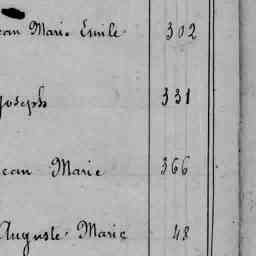 ean Marie Emile 302
Joseph 331
ean Marie 366
Auguste Marie 48